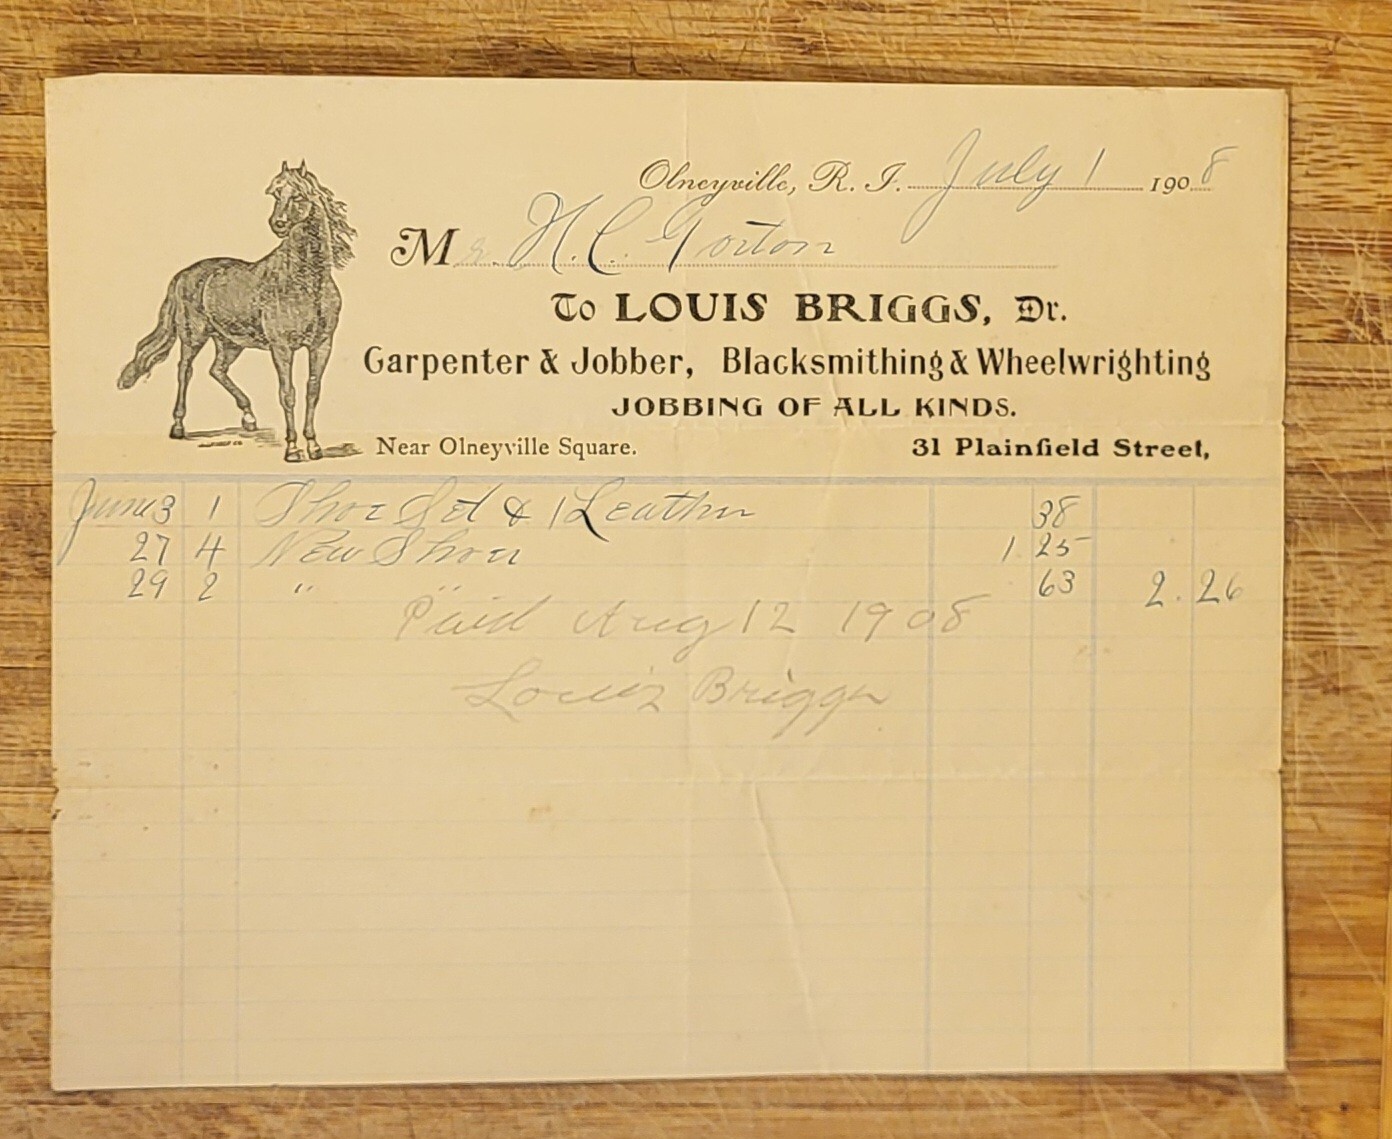 Olneyville, R. I. July 1 1908
Mr. H. C. Gorton
To LOUIS BRIGGS, Dr.
Carpenter & Jobber, Blacksmithing & Wheelwrighting
JOBBING OF ALL KINDS.
Near Olneyville Square. 31 Plainfield Street,
June 3 1 Shoe Set & 1 Leather 38
27 4 New Shoes 1 25
29 2 " " 63 2.26
Paid Aug 12 1908
Louis Briggs